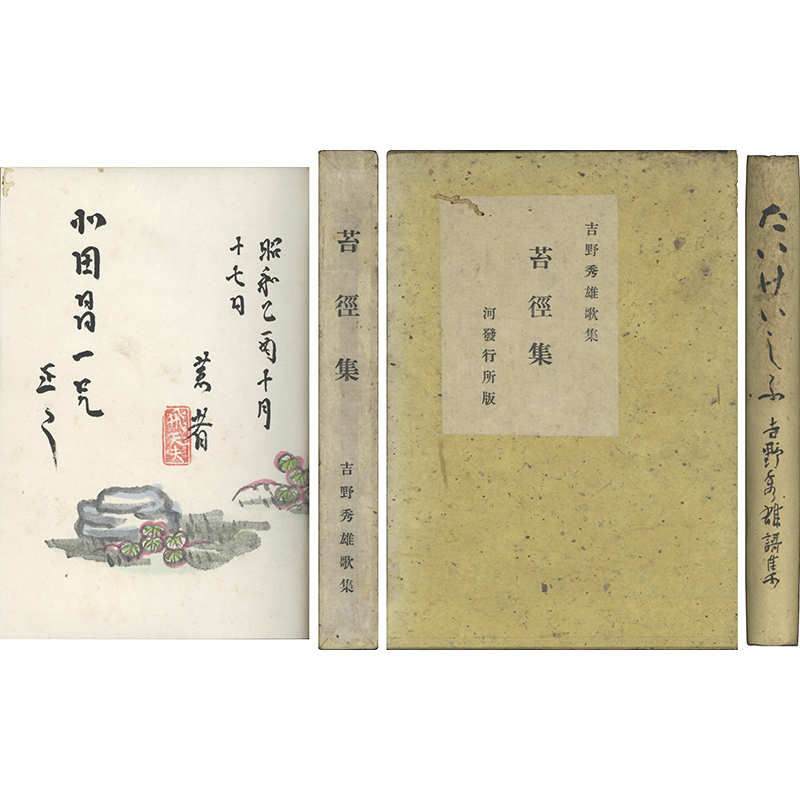 昭和乙酉十月
十七日
著者
田昌一兄
苔徑集
吉野秀雄歌集
吉野秀雄歌集
苔徑集
河發行所版
たいけいしふ
吉野秀雄謌集